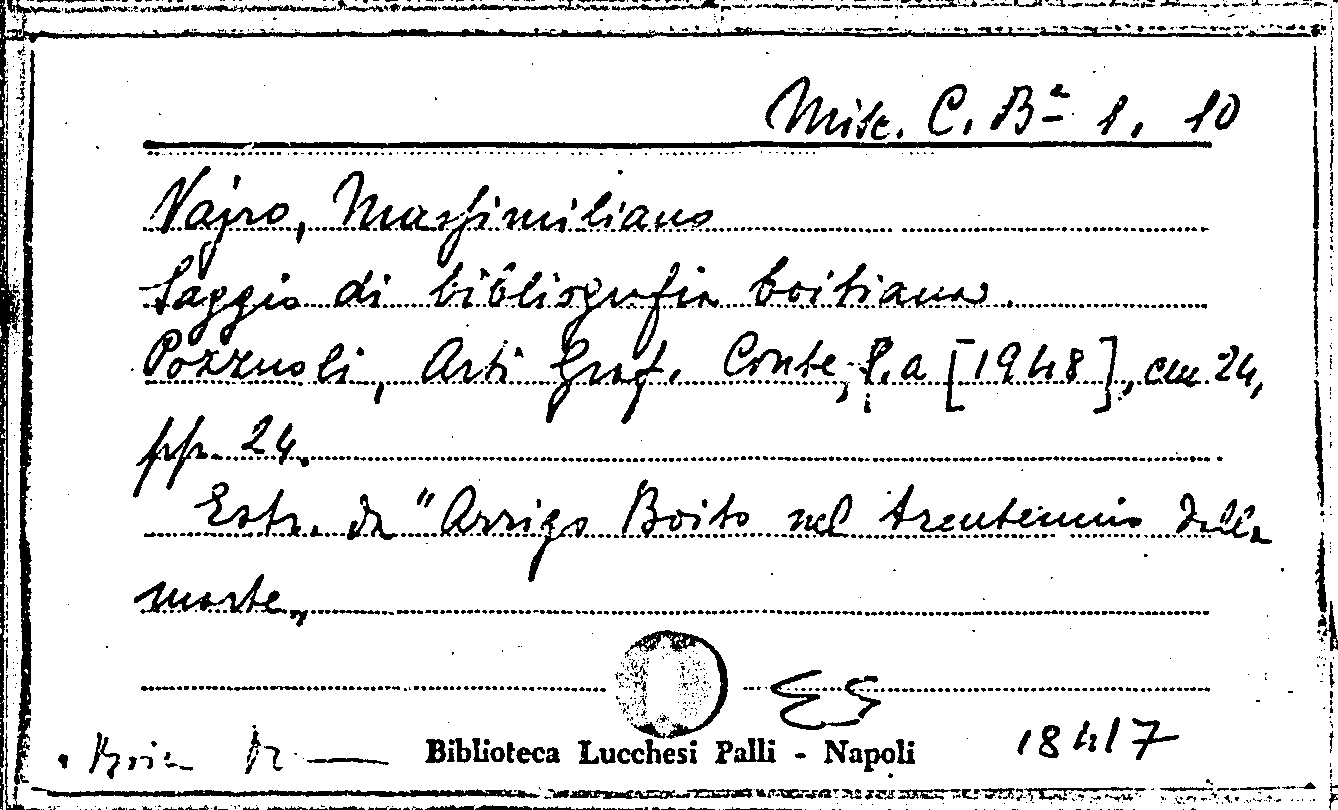 Misc. C. Bª 1. 10
Vajro, Massimiliano
Saggio di bibliografia boitiana.
Pozzuoli, Arti Graf. Conte, s.a [1948], cm 24,
pp. 24.
Estr. da "Arrigo Boito nel trentennio della
morte„
ES
Biblioteca Lucchesi Palli - Napoli
18417